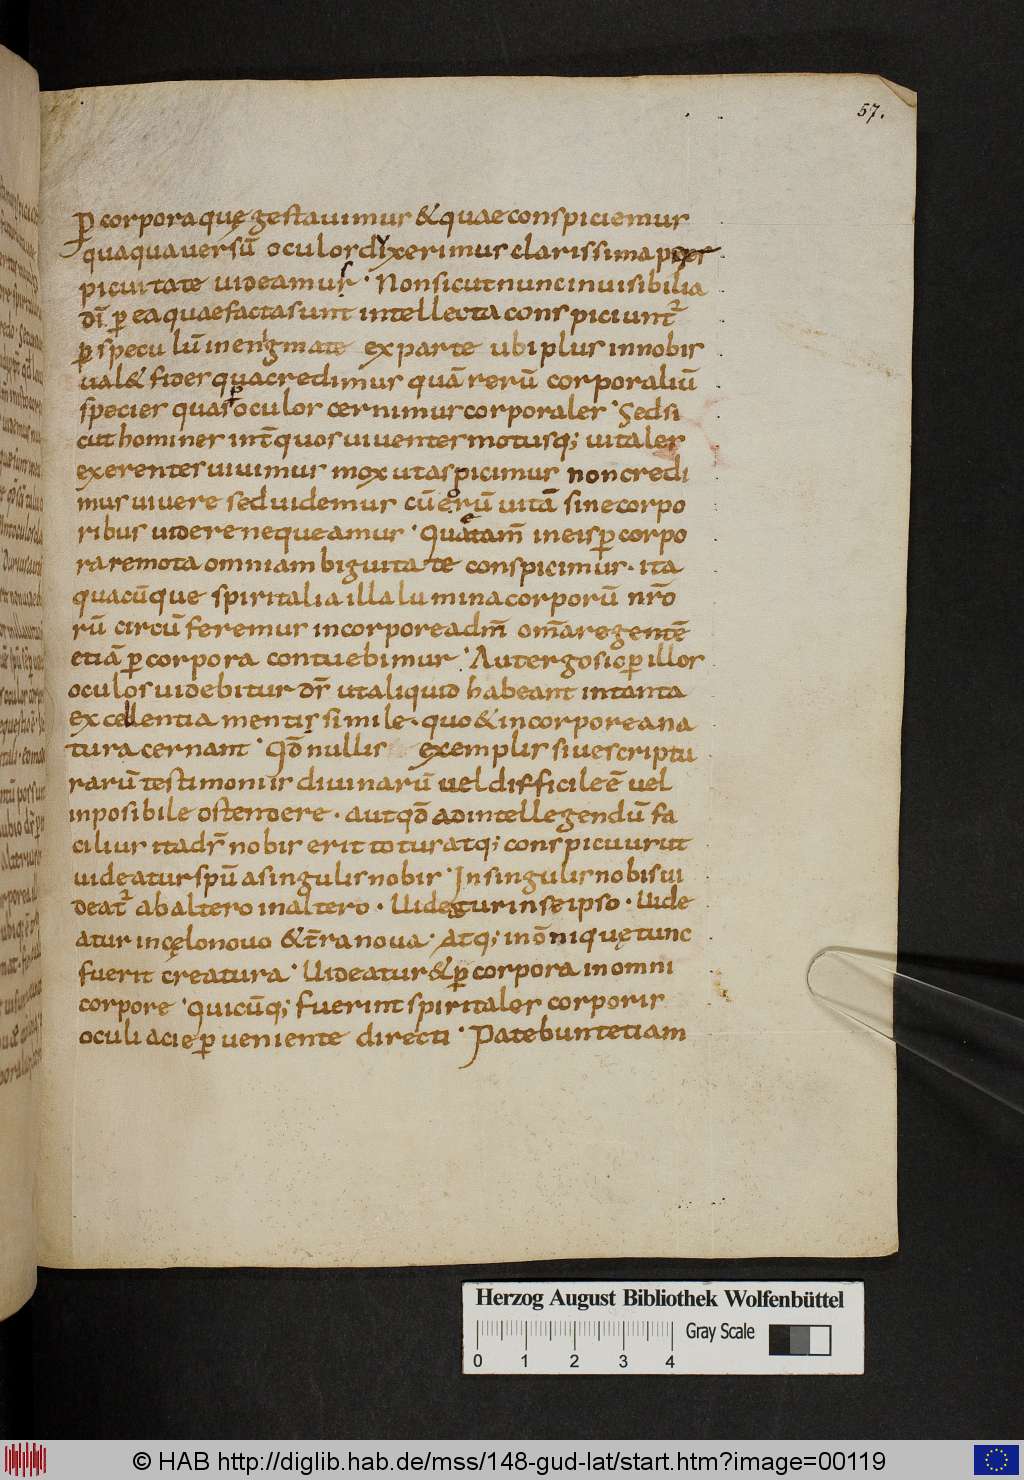 57.
p̄ corpora quę gestauimus & quae conspiciemus
quaquauersū oculos dixerimus clarissima pers
picuitate uideamus · Non sicut nunc inuisibilia
dī p̄ ea quae facta sunt intellecta conspiciunt᷑
p̄ speculū in enigmate ex parte ubi plus in nobis
ual& fides qua credimus quā rerū corporaliū
species quas p̄ oculos cernimus corporales · Sed si
cut homines int̄ quos uiuentes motusq; uitales
exerentes uiuimus mox ut aspicimus non credi
mus uiuere sed uidemus cū eorū uitā sine corpo
ribus uidere nequeamus · Quā tam̄ in eis p̄ corpo
ra remota omni ambiguitate conspicimus · ita
quacūque spiritalia illa lumina corporū nr̄o
rū circūferemus incorporeā dm̄ om̄a regentē
etiā p̄ corpora contuebimur · Aut ergo sic p̄ illos
oculos uidebitur ds̄ ut aliquid habeant in tanta
excellentia mentis simile · quo & incorporea na
tura cernant · Qd̄ nullis exemplis siue scriptu
rarū testimoniis diuinarū uel difficile ē uel
inposibile ostendere · aut qd̄ ad intellegendū fa
cilius ita ds̄ nobis erit totus atq; conspicuus ut
uideatur spū a singulis nobis · In singulis nobis ui
deat᷑ ab altero in altero · Uidetur in se ipso · Uide
atur in cęlo nouo & t̄ra noua · Atq; in ōni quę tunc
fuerit creatura · Uideatur & p̄ corpora in omni
corpore · quicūq; fuerint spiritales corporis
oculi acie p̄ueniente directi · Patebunt etiam
Herzog August Bibliothek Wolfenbüttel
Gray Scale
0 1 2 3 4
© HAB http://diglib.hab.de/mss/148-gud-lat/start.htm?image=00119